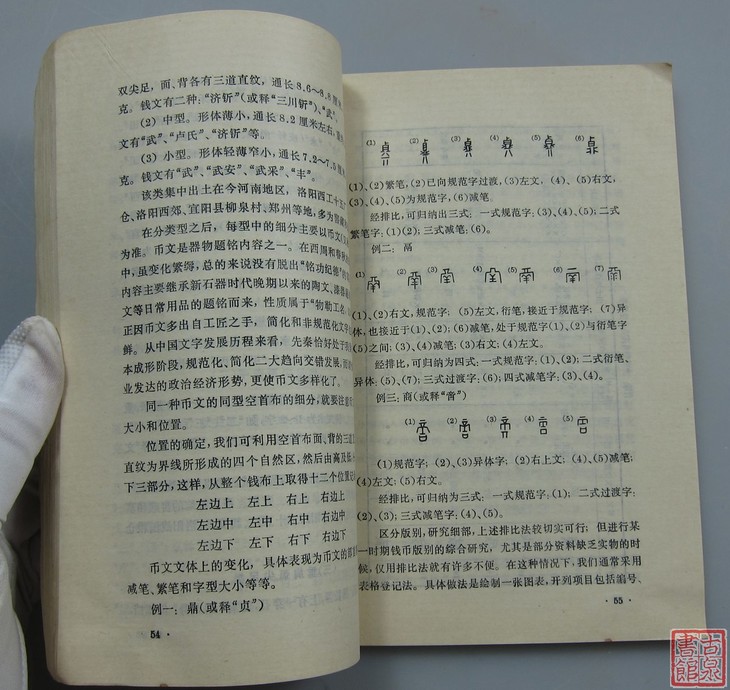 双尖足，面、背各有三道直纹，通长8.6～8.8厘米
克。钱文有二种：“济釿”（或释“三川釿”）、“武”。
（2）中型。形体薄小，通长8.2厘米左右，重
文有“武”、“卢氏”、“济釿”等。
（3）小型。形体轻薄窄小，通长7.2～7.5厘米
克。钱文有“武”、“武安”、“武采”、“丰”。
该类集中出土在今河南地区，洛阳西工十五
仓、洛阳西郊、宜阳县柳泉村、郑州等地，多为窖藏
在分类型之后，每型中的细分主要以币文（
为准。币文是器物题铭内容之一。在西周和春秋
中，虽变化繁缛，总的来说没有脱出“铭功纪德”的
内容主要继承新石器时代晚期以来的陶文、漆器
文等日常用品的题铭而来，性质属于“物勒工名
正因币文多出自工匠之手，简化和非规范化文字
鲜。从中国文字发展历程来看，先秦恰好处于
本成形阶段，规范化、简化二大趋向交错发展；
业发达的政治经济形势，更使币文多样化了。
同一种币文的同型空首布的细分，就要注意
大小和位置。
位置的确定，我们可利用空首布面、背的三道
直纹为界线所形成的四个自然区，然后由高及低
下三部分，这样，从整个钱布上取得十二个位置
左边上 左上 右上 右边上
左边中 左中 右中 右边中
左边下 左下 右下 右边下
币文文体上的变化，具体表现为币文的
减笔、繁笔和字型大小等等。
例一：鼎（或释“贞”）
54 ·
(1) (2) (3) (4) (5) (6)
(1)、(2)繁笔，(2)已向规范字过渡，(3)左文，(4)、(5)右文，
(3)、(4)、(5)为规范字，(6)减笔。
经排比，可归纳出三式：一式规范字：(3)、(4)、(5)；二式
繁笔字：(1)(2)；三式减笔：(6)。
例二：鬲
(1) (2) (3) (4) (5) (6) (7)
(1)、(2)右文，规范字；(5)左文，衍笔，接近于规范字；(7)异
体，也接近于(1)、(2)；(6)减笔，处于规范字(1)、(2)与衍笔字
(5)之间；(3)、(4)减笔；(3)右文；(4)左文。
经排比，可归纳为四式：一式规范字：(1)、(2)；二式衍笔、
异体：(5)、(7)；三式过渡字：(6)；四式减笔字：(3)、(4)。
例三：商（或释“啻”）
(1) (2) (3) (4) (5)
(1)规范字；(2)、(3)异体字；(2)右上文；(4)、(5)减笔；
(4)左文；(5)右文。
经排比，可归纳为三式：一式规范字：(1)；二式过渡字：
(2)、(3)；三式减笔字：(4)、(5)。
区分版别，研究细部，上述排比法较切实可行；但进行某
一时期钱币版别的综合研究，尤其是部分资料缺乏实物的时
候，仅用排比法就有许多不便。在这种情况下，我们通常采用
表格登记法。具体做法是绘制一张图表，开列项目包括编号、
· 55 ·
古泉
書館